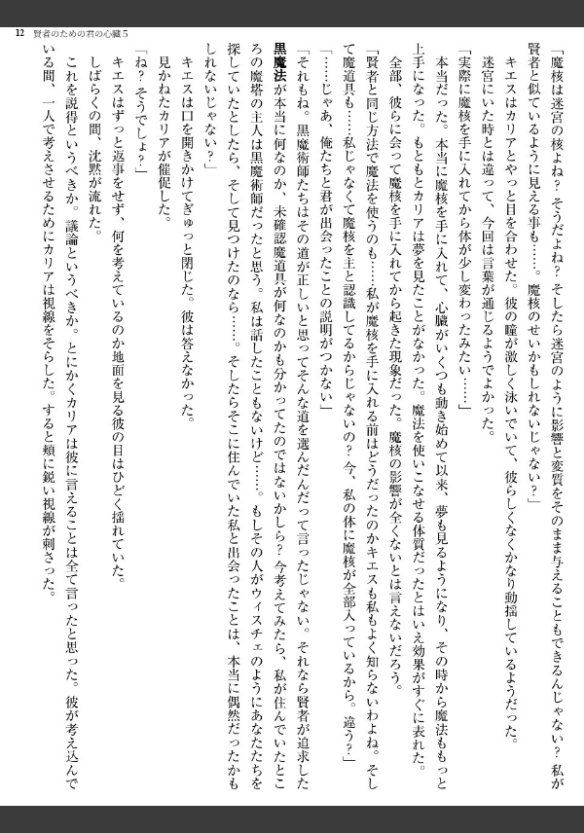 12 賢者のための君の心臓５
「魔核は迷宮の核よね？ そうだよね？ そしたら迷宮のように影響と変質をそのまま与えることもできるんじゃない？ 私が
賢者と似ているように見える事も……。魔核のせいかもしれないじゃない？」
キエスはカリアとやっと目を合わせた。彼の瞳が激しく泳いでいて、彼らしくなくかなり動揺しているようだった。
迷宮にいた時とは違って、今回は言葉が通じるようでよかった。
「実際に魔核を手に入れてから体が少し変わったみたい……」
本当だった。本当に魔核を手に入れて、心臓がいくつも動き始めて以来、夢も見るようになり、その時から魔法ももっと
上手になった。もともとカリアは夢を見たことがなかった。魔法を使いこなせる体質だったとはいえ効果がすぐに表れた。
全部、彼らに会って魔核を手に入れてから起きた現象だった。魔核の影響が全くないとは言えないだろう。
「賢者と同じ方法で魔法を使うのも……私が魔核を手に入れる前はどうだったのかキエスも私もよく知らないわよね。そし
て魔道具も……私じゃなくて魔核を主と認識してるからじゃないの？ 今、私の体に魔核が全部入っているから。違う？」
「……じゃあ、俺たちと君が出会ったことの説明がつかない」
「それもね。黒魔術師たちはその道が正しいと思ってそんな道を選んだんだって言ったじゃない。それなら賢者が追求した
黒魔法が本当に何なのか、未確認魔道具が何なのかも分かってたのではないかしら？ 今考えてみたら、私が住んでいたとこ
ろの魔塔の主人は黒魔術師だったと思う。私は話したこともないけど……。もしその人がウィスチェのようにあなたたちを
探していたとしたら、そして見つけたのなら……。そしたらそこに住んでいた私と出会ったことは、本当に偶然だったかも
しれないじゃない？」
キエスは口を開きかけてぎゅっと閉じた。彼は答えなかった。
見かねたカリアが催促した。
「ね？ そうでしょ？」
キエスはずっと返事をせず、何を考えているのか地面を見る彼の目はひどく揺れていた。
しばらくの間、沈黙が流れた。
これを説得というべきか。議論というべきか。とにかくカリアは彼に言えることは全て言ったと思った。彼が考え込んで
いる間、一人で考えさせるためにカリアは視線をそらした。すると頬に鋭い視線が刺さった。